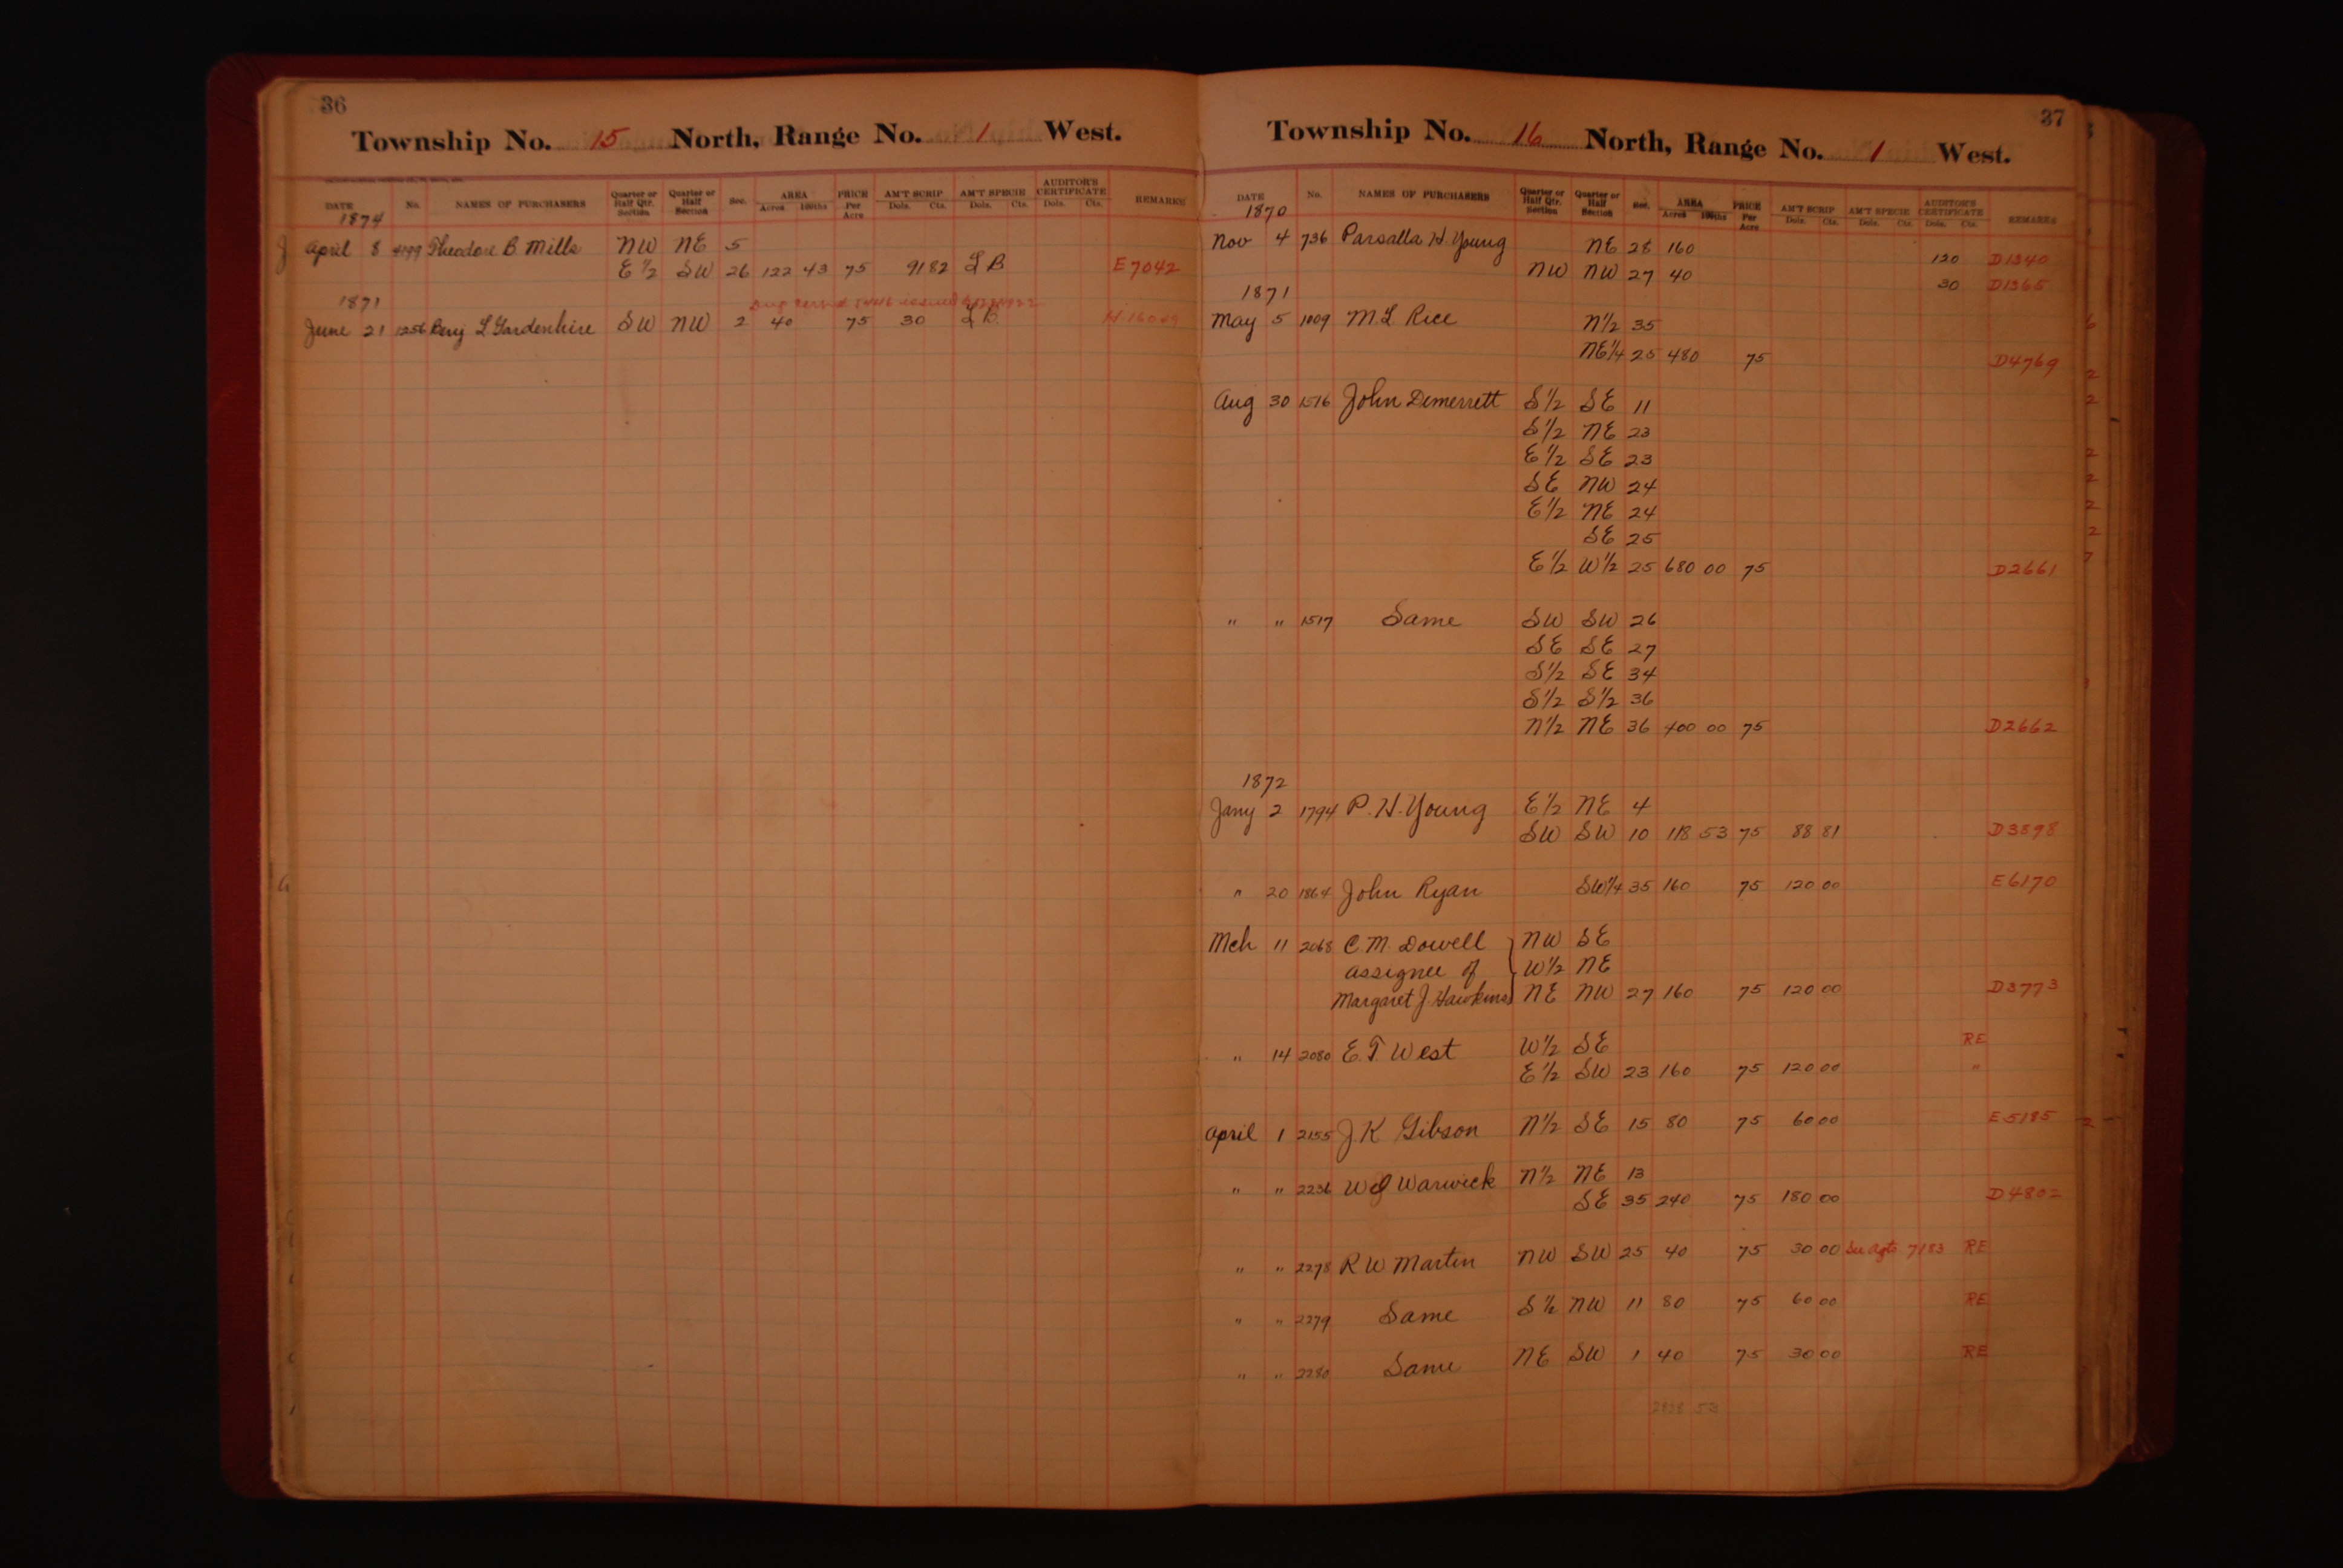 36
Township No. 15 North, Range No. 1 West.
DATE No. NAMES OF PURCHASERS Quarter or Half Qtr. Section Quarter or Half Section Sec. AREA Acres 100ths PRICE Per Acre AM'T SCRIP Dols. Cts. AM'T SPECIE Dols. Cts. AUDITOR'S CERTIFICATE Dols. Cts. REMARKS
1874
April 8 4199 Theodore B. Mills NW NE 5
E 1/2 SW 26 122 43 75 91 82 L B E 7042
1871
June 21 1256 Benj L Gardenhire SW NW 2 40 75 30 L B
37
Township No. 16 North, Range No. 1 West.
DATE No. NAMES OF PURCHASERS Quarter or Half Qtr. Section Quarter or Half Section Sec. AREA Acres 100ths PRICE Per Acre AM'T SCRIP Dols. Cts. AM'T SPECIE Dols. Cts. AUDITOR'S CERTIFICATE Dols. Cts. REMARKS
1870
Nov 4 736 Parsalla H. Young NE 28 160 120 D1340
NW NW 27 40 30 D1365
1871
May 5 1009 M. L Rice N1/2 35
NE1/4 25 480 75 D4769
Aug 30 1516 John Demerrett S1/2 SE 11
S1/2 NE 23
E1/2 SE 23
SE NW 24
E1/2 NE 24
SE 25
E1/2 W1/2 25 680 00 75 D2661
" " 1517 Same SW SW 26
SE SE 27
S1/2 SE 34
S1/2 S1/2 36
N1/2 NE 36 400 00 75 D2662
1872
Jany 2 1794 P. H. Young E1/2 NE 4
SW SW 10 118 53 75 88 81 D3898
" 20 1864 John Ryan SW1/4 35 160 75 120 00 E6170
Mch 11 2068 C. M. Dowell NW SE
assignee of W1/2 NE
Margaret J. Hawkins NE NW 27 160 75 120 00 D3773
" 14 2080 E. T West W1/2 SE RE
E1/2 SW 23 160 75 120 00 "
April 1 2155 J. K Gibson N1/2 SE 15 80 75 60 00 E5185
" " 2236 W J Warwick N1/2 NE 13
SE 35 240 75 180 00 D4802
" " 2278 R W Martin NW SW 25 40 75 30 00 See Agts 7183 RE
" " 2279 Same S 1/2 NW 11 80 75 60 00 RE
" " 2280 Same NE SW 1 40 75 30 00 RE